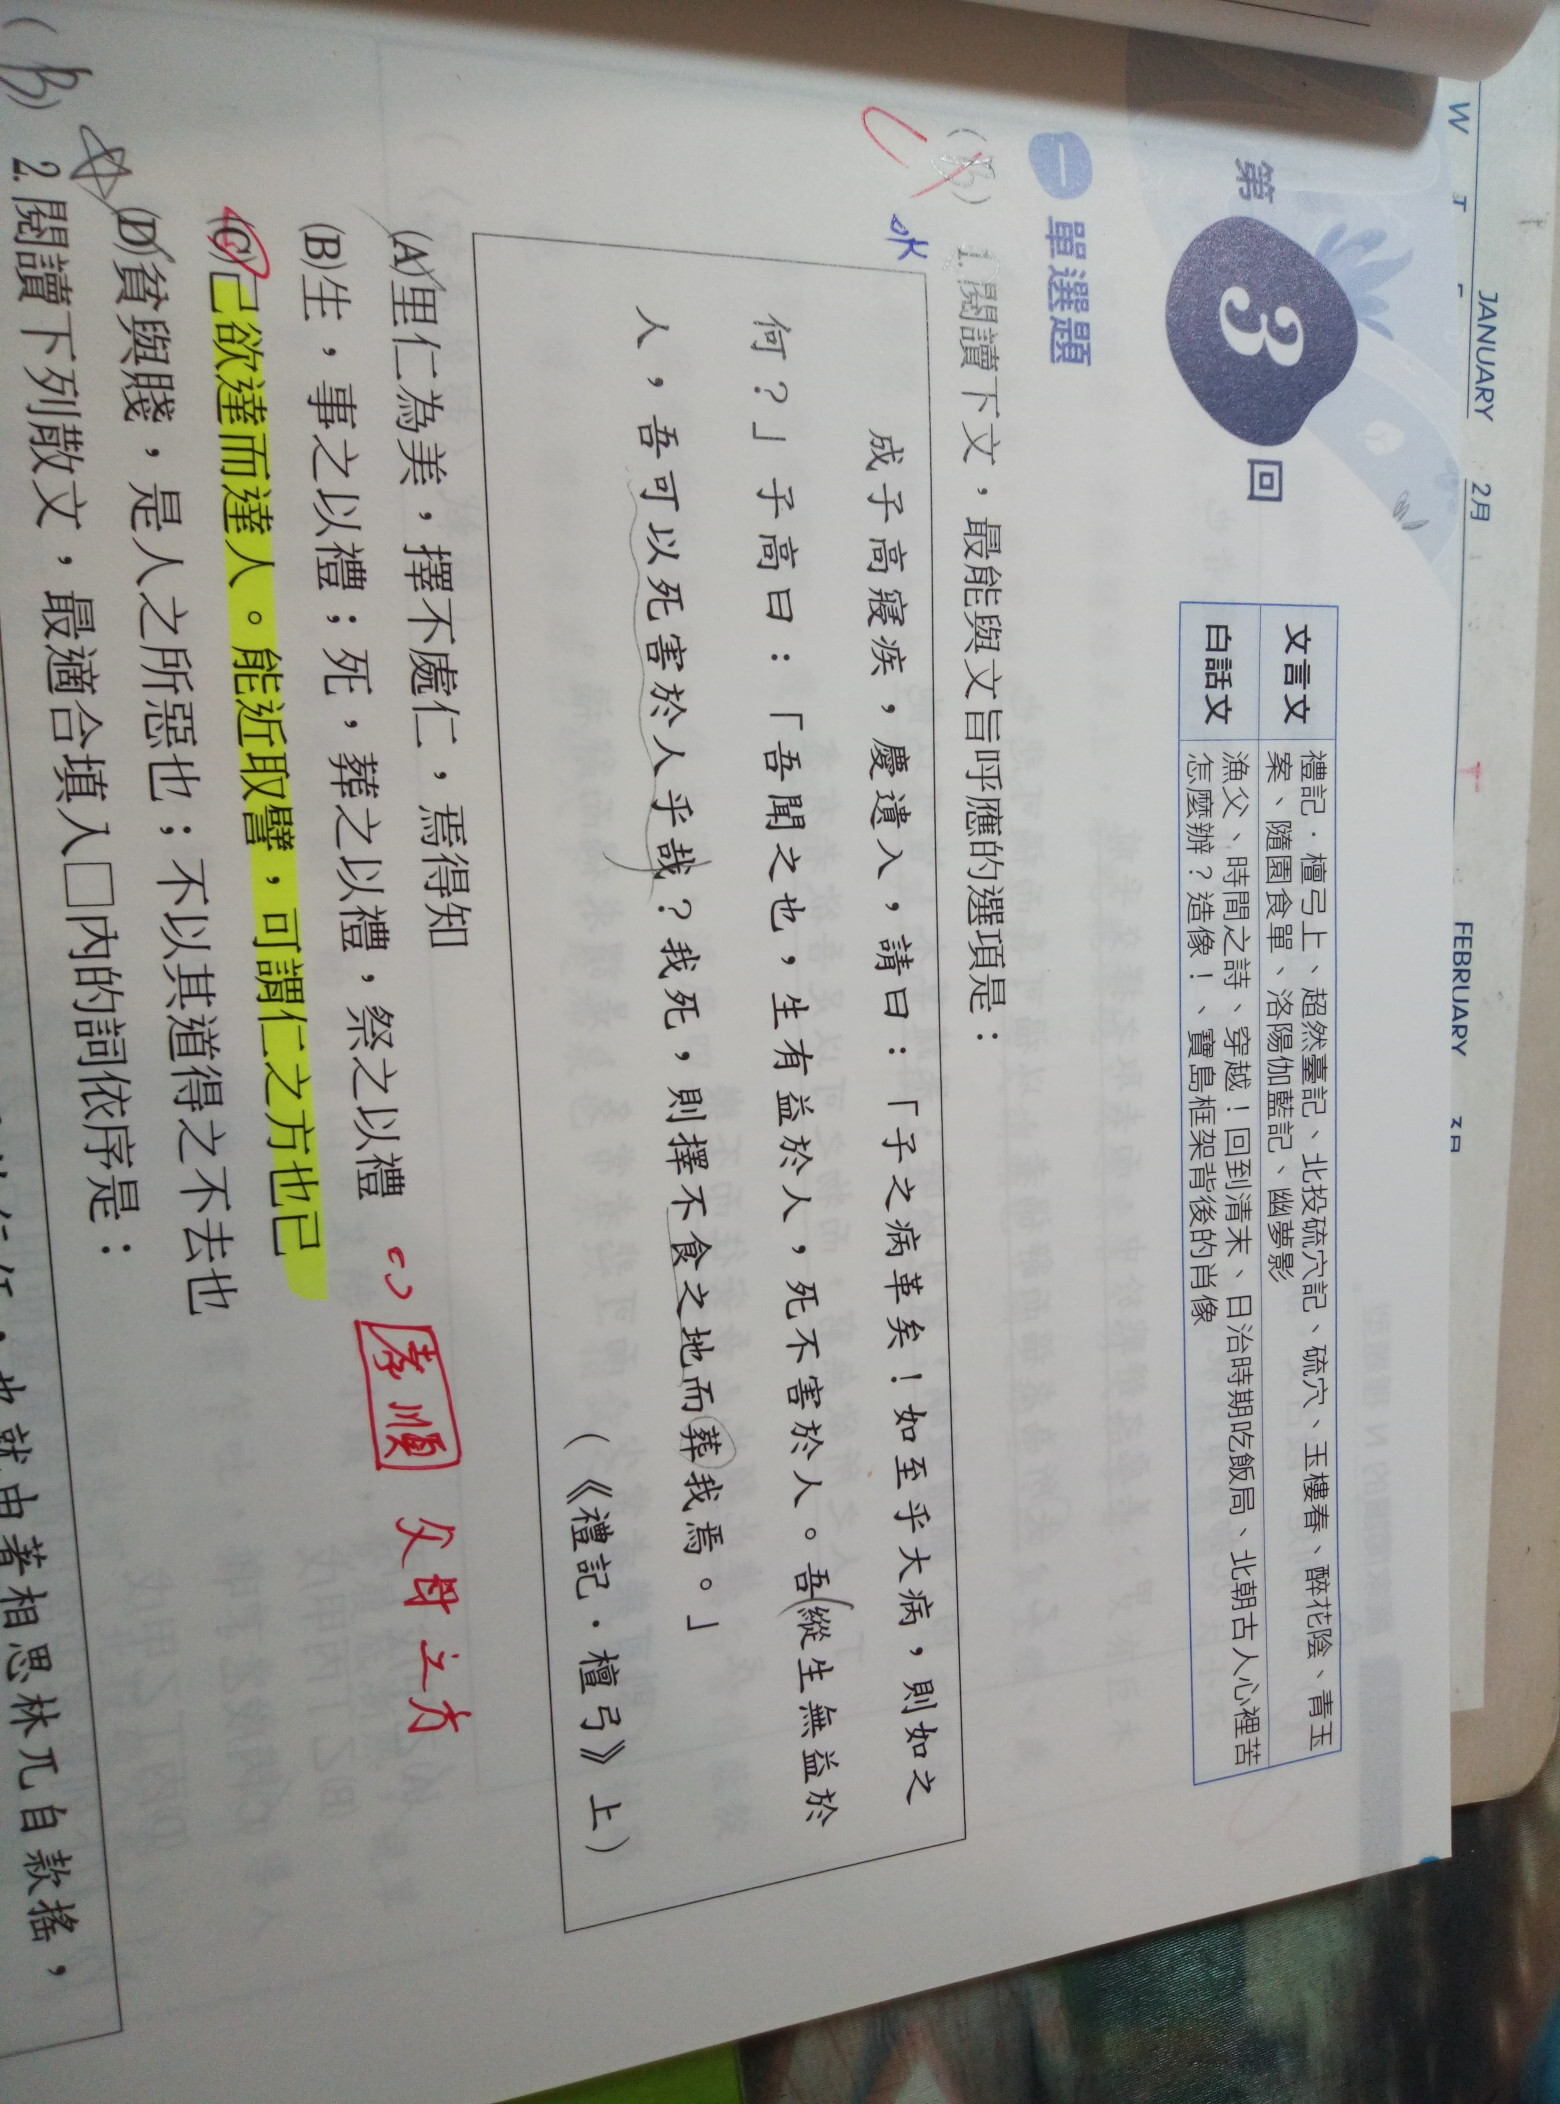 W
JANUARY
2月
FEBRUARY
第 3 回
文言文 禮記．檀弓上、超然臺記、北投硫穴記、硫穴、玉樓春、醉花陰、青玉
案、隨園食單、洛陽伽藍記、幽夢影
白話文 漁父、時間之詩、穿越！回到清末、日治時期吃飯局、北朝古人心裡苦
怎麼辦？造像！、寶島框架背後的肖像
一 單選題
(B) 1.閱讀下文，最能與文旨呼應的選項是：
OK
成子高寢疾，慶遺入，請曰：「子之病革矣！如至乎大病，則如之
何？」子高曰：「吾聞之也，生有益於人，死不害於人。吾縱生無益於
人，吾可以死害於人乎哉？我死，則擇不食之地而葬我焉。」
（《禮記．檀弓》上）
(A)里仁為美，擇不處仁，焉得知
(B)生，事之以禮；死，葬之以禮，祭之以禮 孝順 父母之方
(C)己欲達而達人。能近取譬，可謂仁之方也已
(D)貧與賤，是人之所惡也；不以其道得之不去也
(B) 2.閱讀下列散文，最適合填入□內的詞依序是：
也就由著相思林兀自款搖，